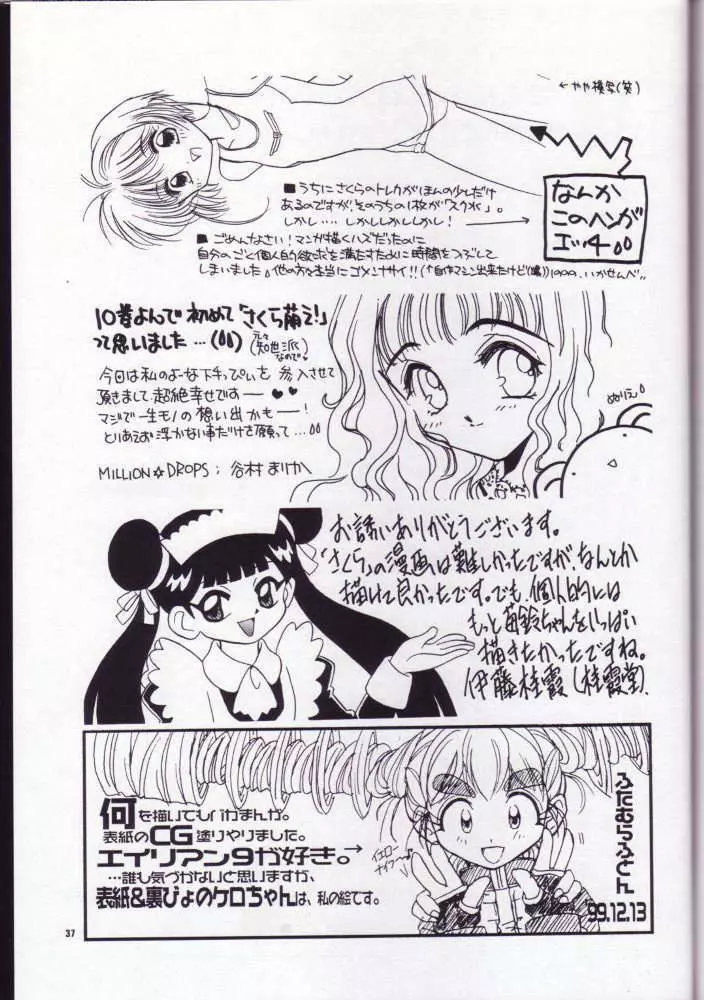 ← やや模写(笑)
なんか
このヘンが
エッチ
■うちにさくらのトレカがほんの少しだけ
あるのですが、そのうちの1枚が「スク水」。
しかし‥‥しかししかししかし!
■ごめんなさい!マンガ描くハズだったのに
自分のごく個人的欲求を満たすために時間をつぶして
しまいました。他の方々本当にゴメンナサイ!!
10巻よんで初めて「さくら萌え!」
って思いました…
(元々知世派なので)
今回は私のよーな下手っぴいを参入させて
頂きまして超絶幸せですー♥♥
マジで一生モノの想い出かもー!
とりあえず浮かない事だけを願って…
MILLION☆DROPS; 谷村まりか
ぬりえ
お誘いありがとうございます。
「さくら」の漫画は難しかったですが、なんとか
描けて良かったです。でも、個人的には
もっと苺鈴ちゃんをいっぱい
描きたかったですね。
伊藤桂霞(桂霞堂)
何を描いてもバカまんが。
表紙のCG塗りやりました。
エイリアン9が好き。→
…誰も気づかないと思いますが、
表紙&裏びょのケロちゃんは、私の絵です。
イエロー
ナイフ〜
ふたむらふどん
99.12.13
37